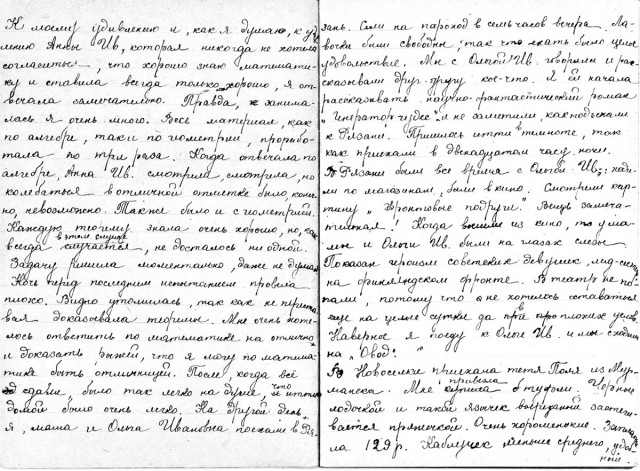 К моему удивлению и, как я думаю, к уди
лению Анны Ив, которая никогда не хотела
согласиться, что хорошо знаю математи-
ку и ставила всегда только хорошо, я от-
вечала замечательно. Правда, занима-
лась я очень много. Весь материал, как
по алгебре, так и по геометрии, прорабо-
тала по три раза. Когда отвечала по
алгебре, Анна Ив. смотрела, смотрела, но
колебаться в отличной отметке было, коне-
но, невозможно. Также было и с геометрией.
Каждую теорему знала очень хорошо, но, как
всегда в этом случае случается, не досталось ни одной.
Задачу решила моментально, даже не думая
Ночь перед последним испытанием провела
плохо. Видно утомилась, так как не переста
вая доказывала теоремы. Мне очень хоте-
лось ответить по математике на отлично
и доказать рыжей, что я могу по матема-
тике быть отличницей. После, когда всё
сдали, было так легко на душе, что и итти
домой было очень легко. На другой день
я, маша и Ольга Ивановна поехали в Ря-
зань. Сели на пароход в семь часов вечера. Ла-
вочки были свободны, так что ехать было целое
удовольствие. Мы с Ольгой Ив. говорили и рас-
сказывали друг-другу кое-что. Я ей начала
рассказывать научно-фантастический роман
"Генератор чудес" и не заметили, как подъехали
к Рязани. Пришлось итти в темноте, так
как приехали в двенадцатом часу ночи.
В Рязани были все время с Ольгой Ив.: ходи-
ли по магазинам, были в кино. Смотрели кар-
тину "Фронтовые подруги". Вещь замеча-
тельная! Когда вышли из кино, то у ма-
мы и Ольги Ив. были на глазах слезы
Показан героизм советских девушек, мед-сестер
на финляндском фронте. В театр не по-
пали, потому что не хотелось оставаться
еще на целые сутки да при плохих услов.
Наверное я поеду к Ольге Ив. и мы сходим
на "Овод".
В Новоселки приехала тетя Поля из Мур-
манска. Мне привезла туфли. Черные
лодочкой и такой язычек вырезанной застеги-
вается пряжечкой. Очень хорошенькие. Запла
ла 129 р. Каблучек меньше среднего, удоб
ный.